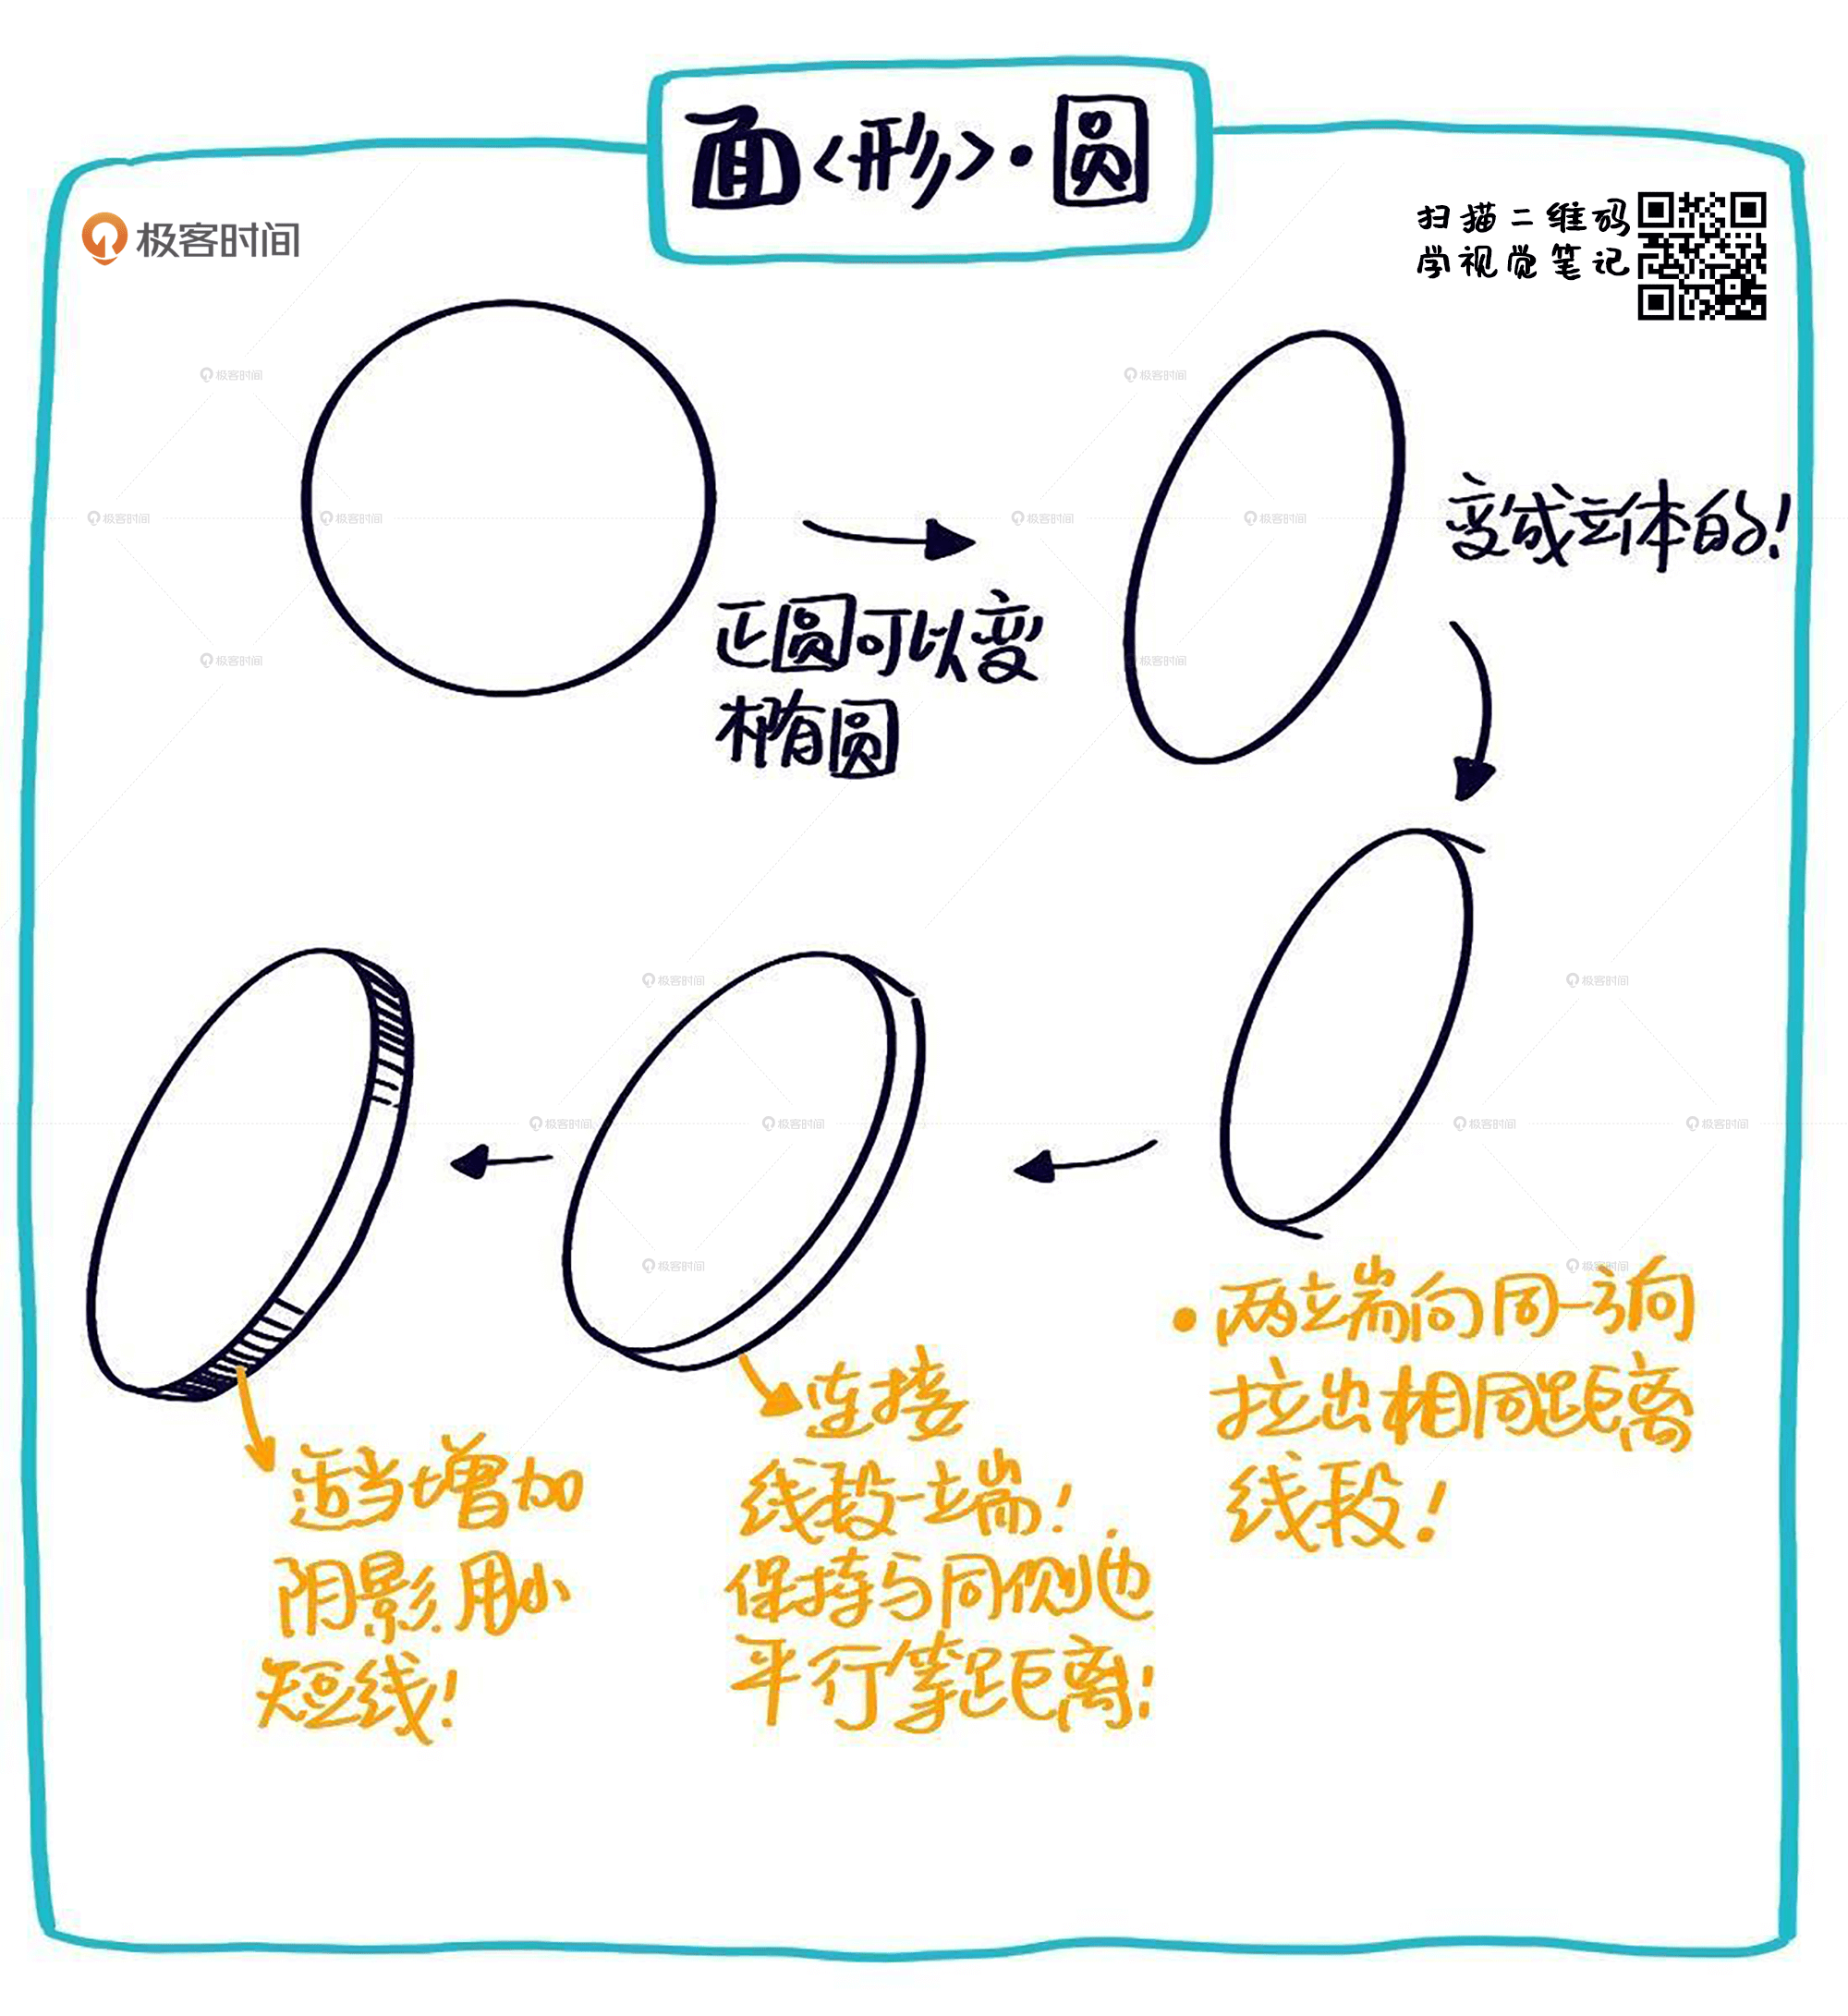 面<形>·圆
极客时间
扫描二维码
学视觉笔记
正圆可以变
椭圆
变成立体的!
·两端向同一方向
拉出相同距离
线段!
连接
线段一端!
保持与同侧边
平行等距离!
适当增加
阴影.用小
短线!